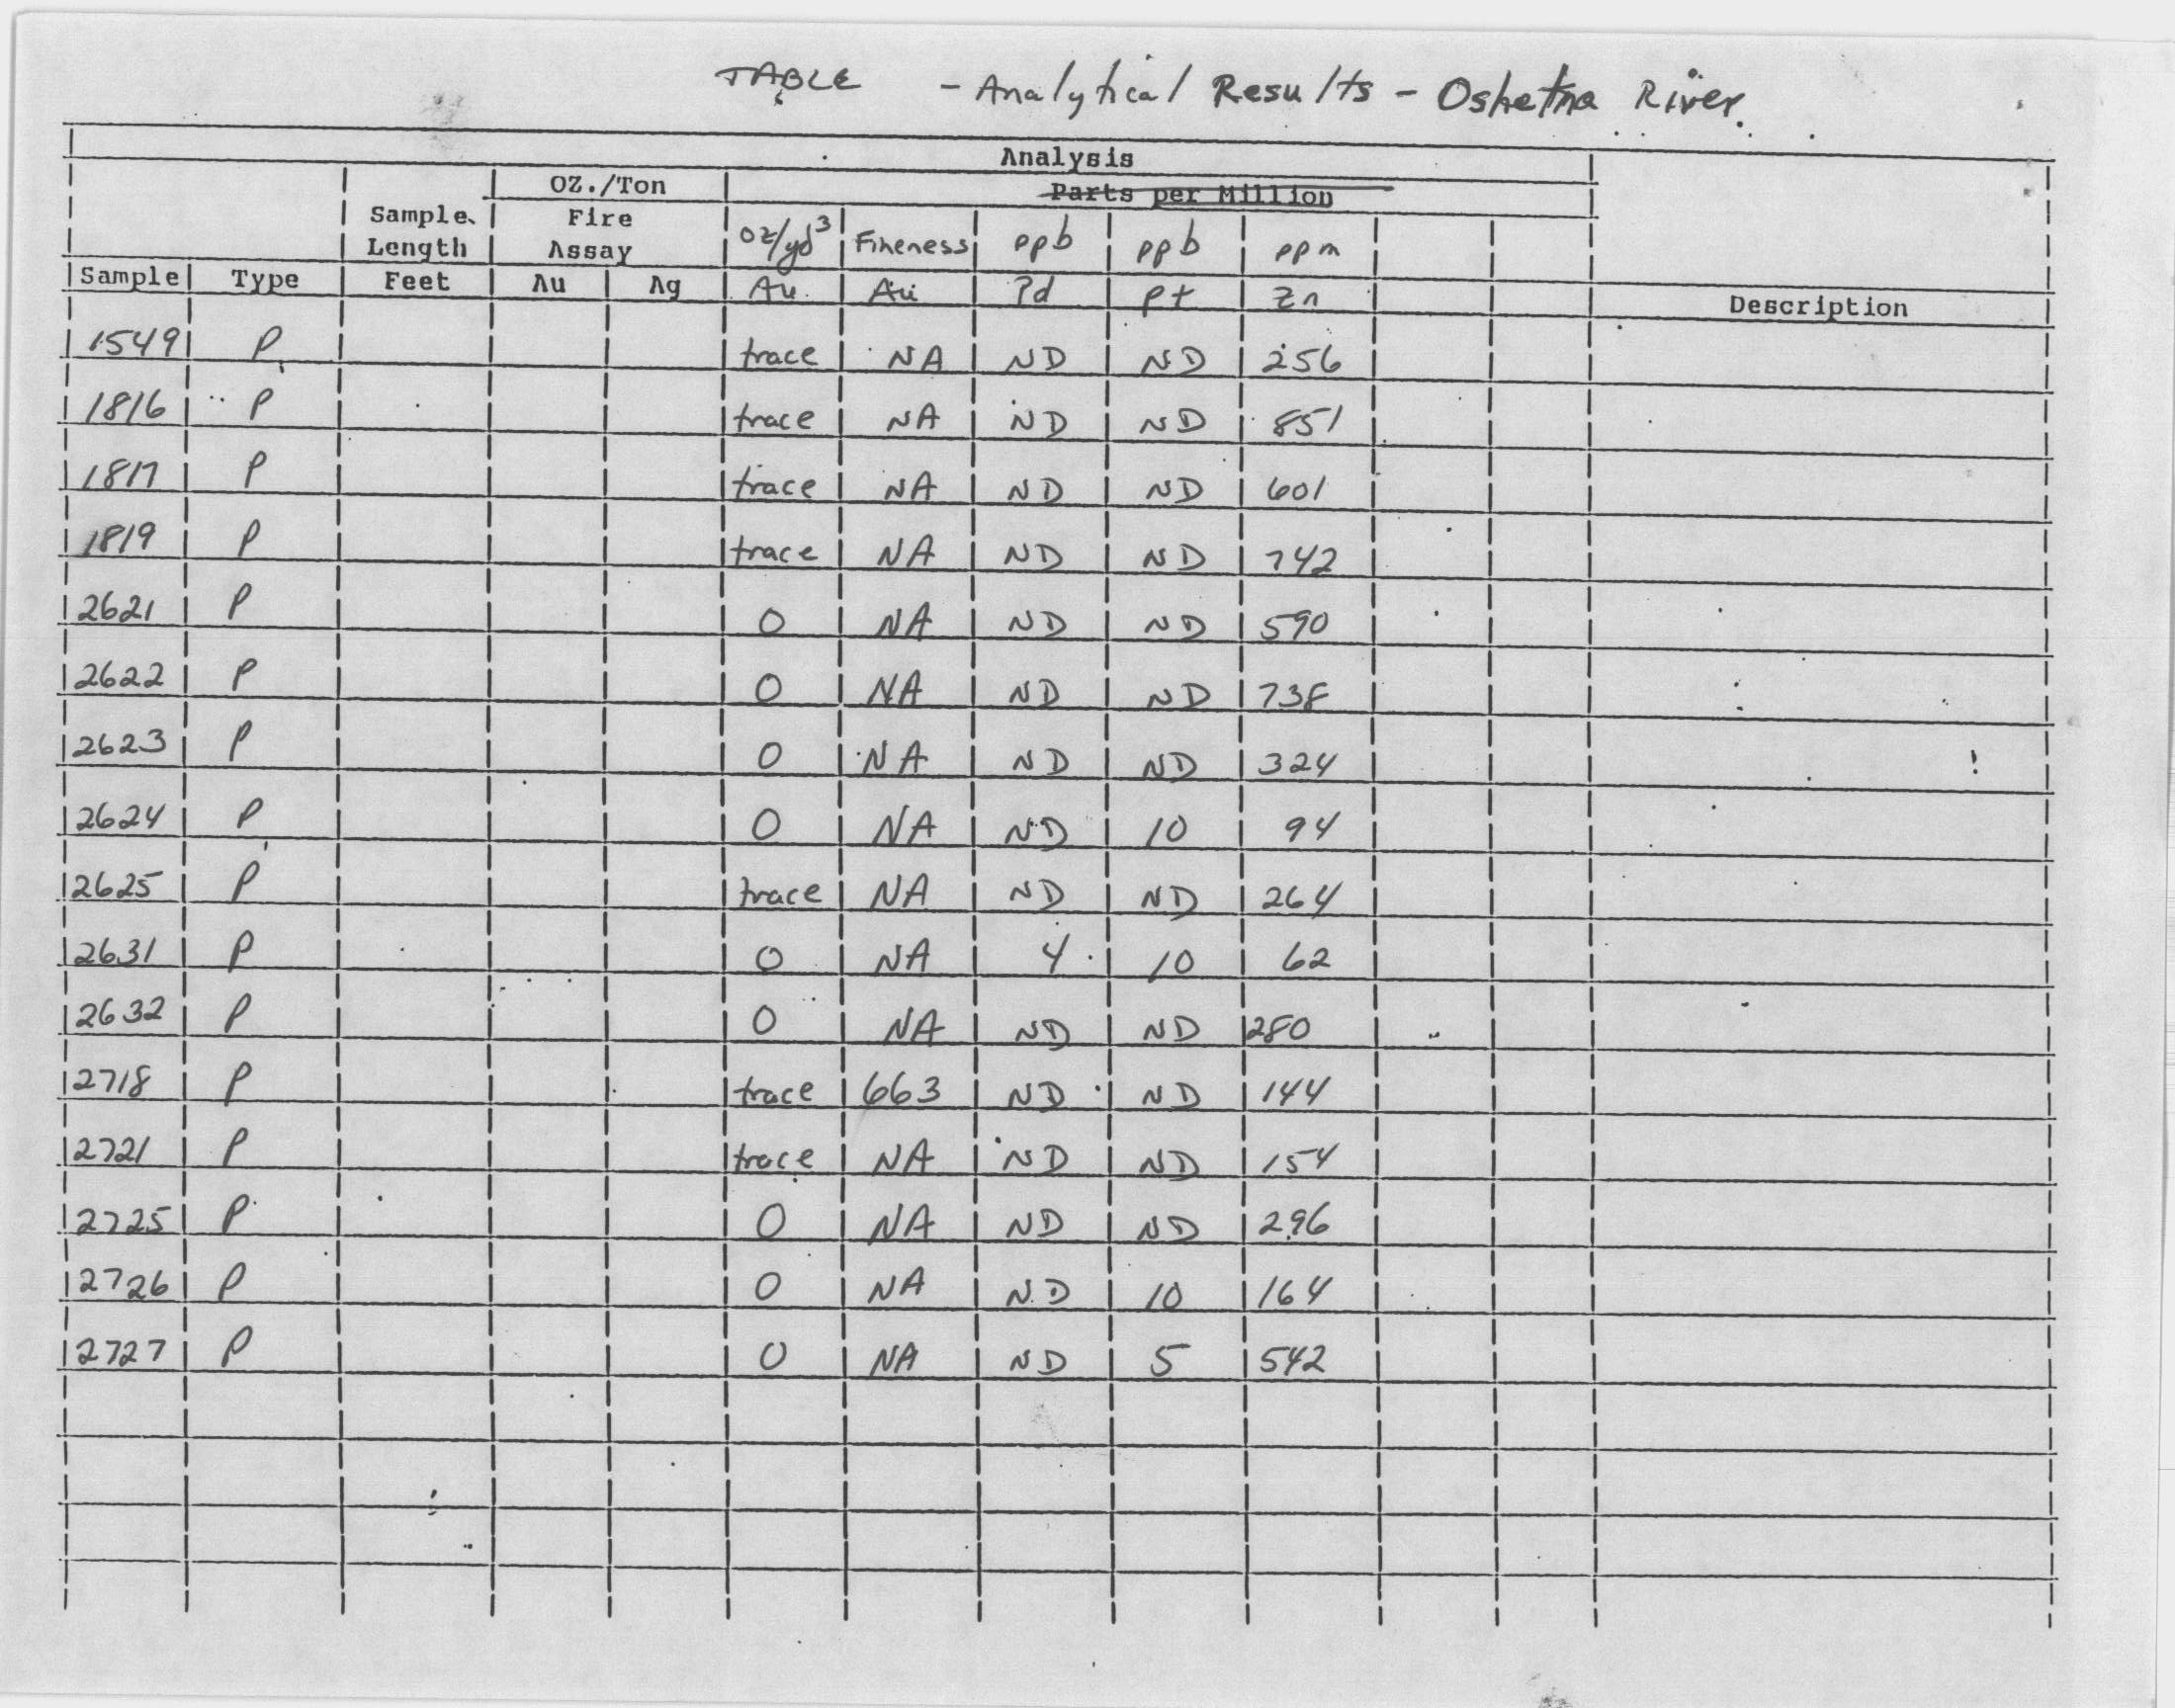 TABLE - Analytical Results - Oshetna River.
Analysis
OZ./Ton Parts per Million
Sample Length Fire Assay oz/yd³ Fineness ppb ppb ppm
Sample Type Feet Au Ag Au Au Pd Pt Zn Description
1549 P trace NA ND ND 256
1816 P trace NA ND ND 851
1817 P trace NA ND ND 601
1819 P trace NA ND ND 742
2621 P 0 NA ND ND 590
2622 P 0 NA ND ND 738
2623 P 0 NA ND ND 324
2624 P 0 NA ND 10 94
2625 P trace NA ND ND 264
2631 P 0 NA 4 10 62
2632 P 0 NA ND ND 280
2718 P trace 663 ND ND 144
2721 P trace NA ND ND 154
2725 P 0 NA ND ND 296
2726 P 0 NA ND 10 164
2727 P 0 NA ND 5 542